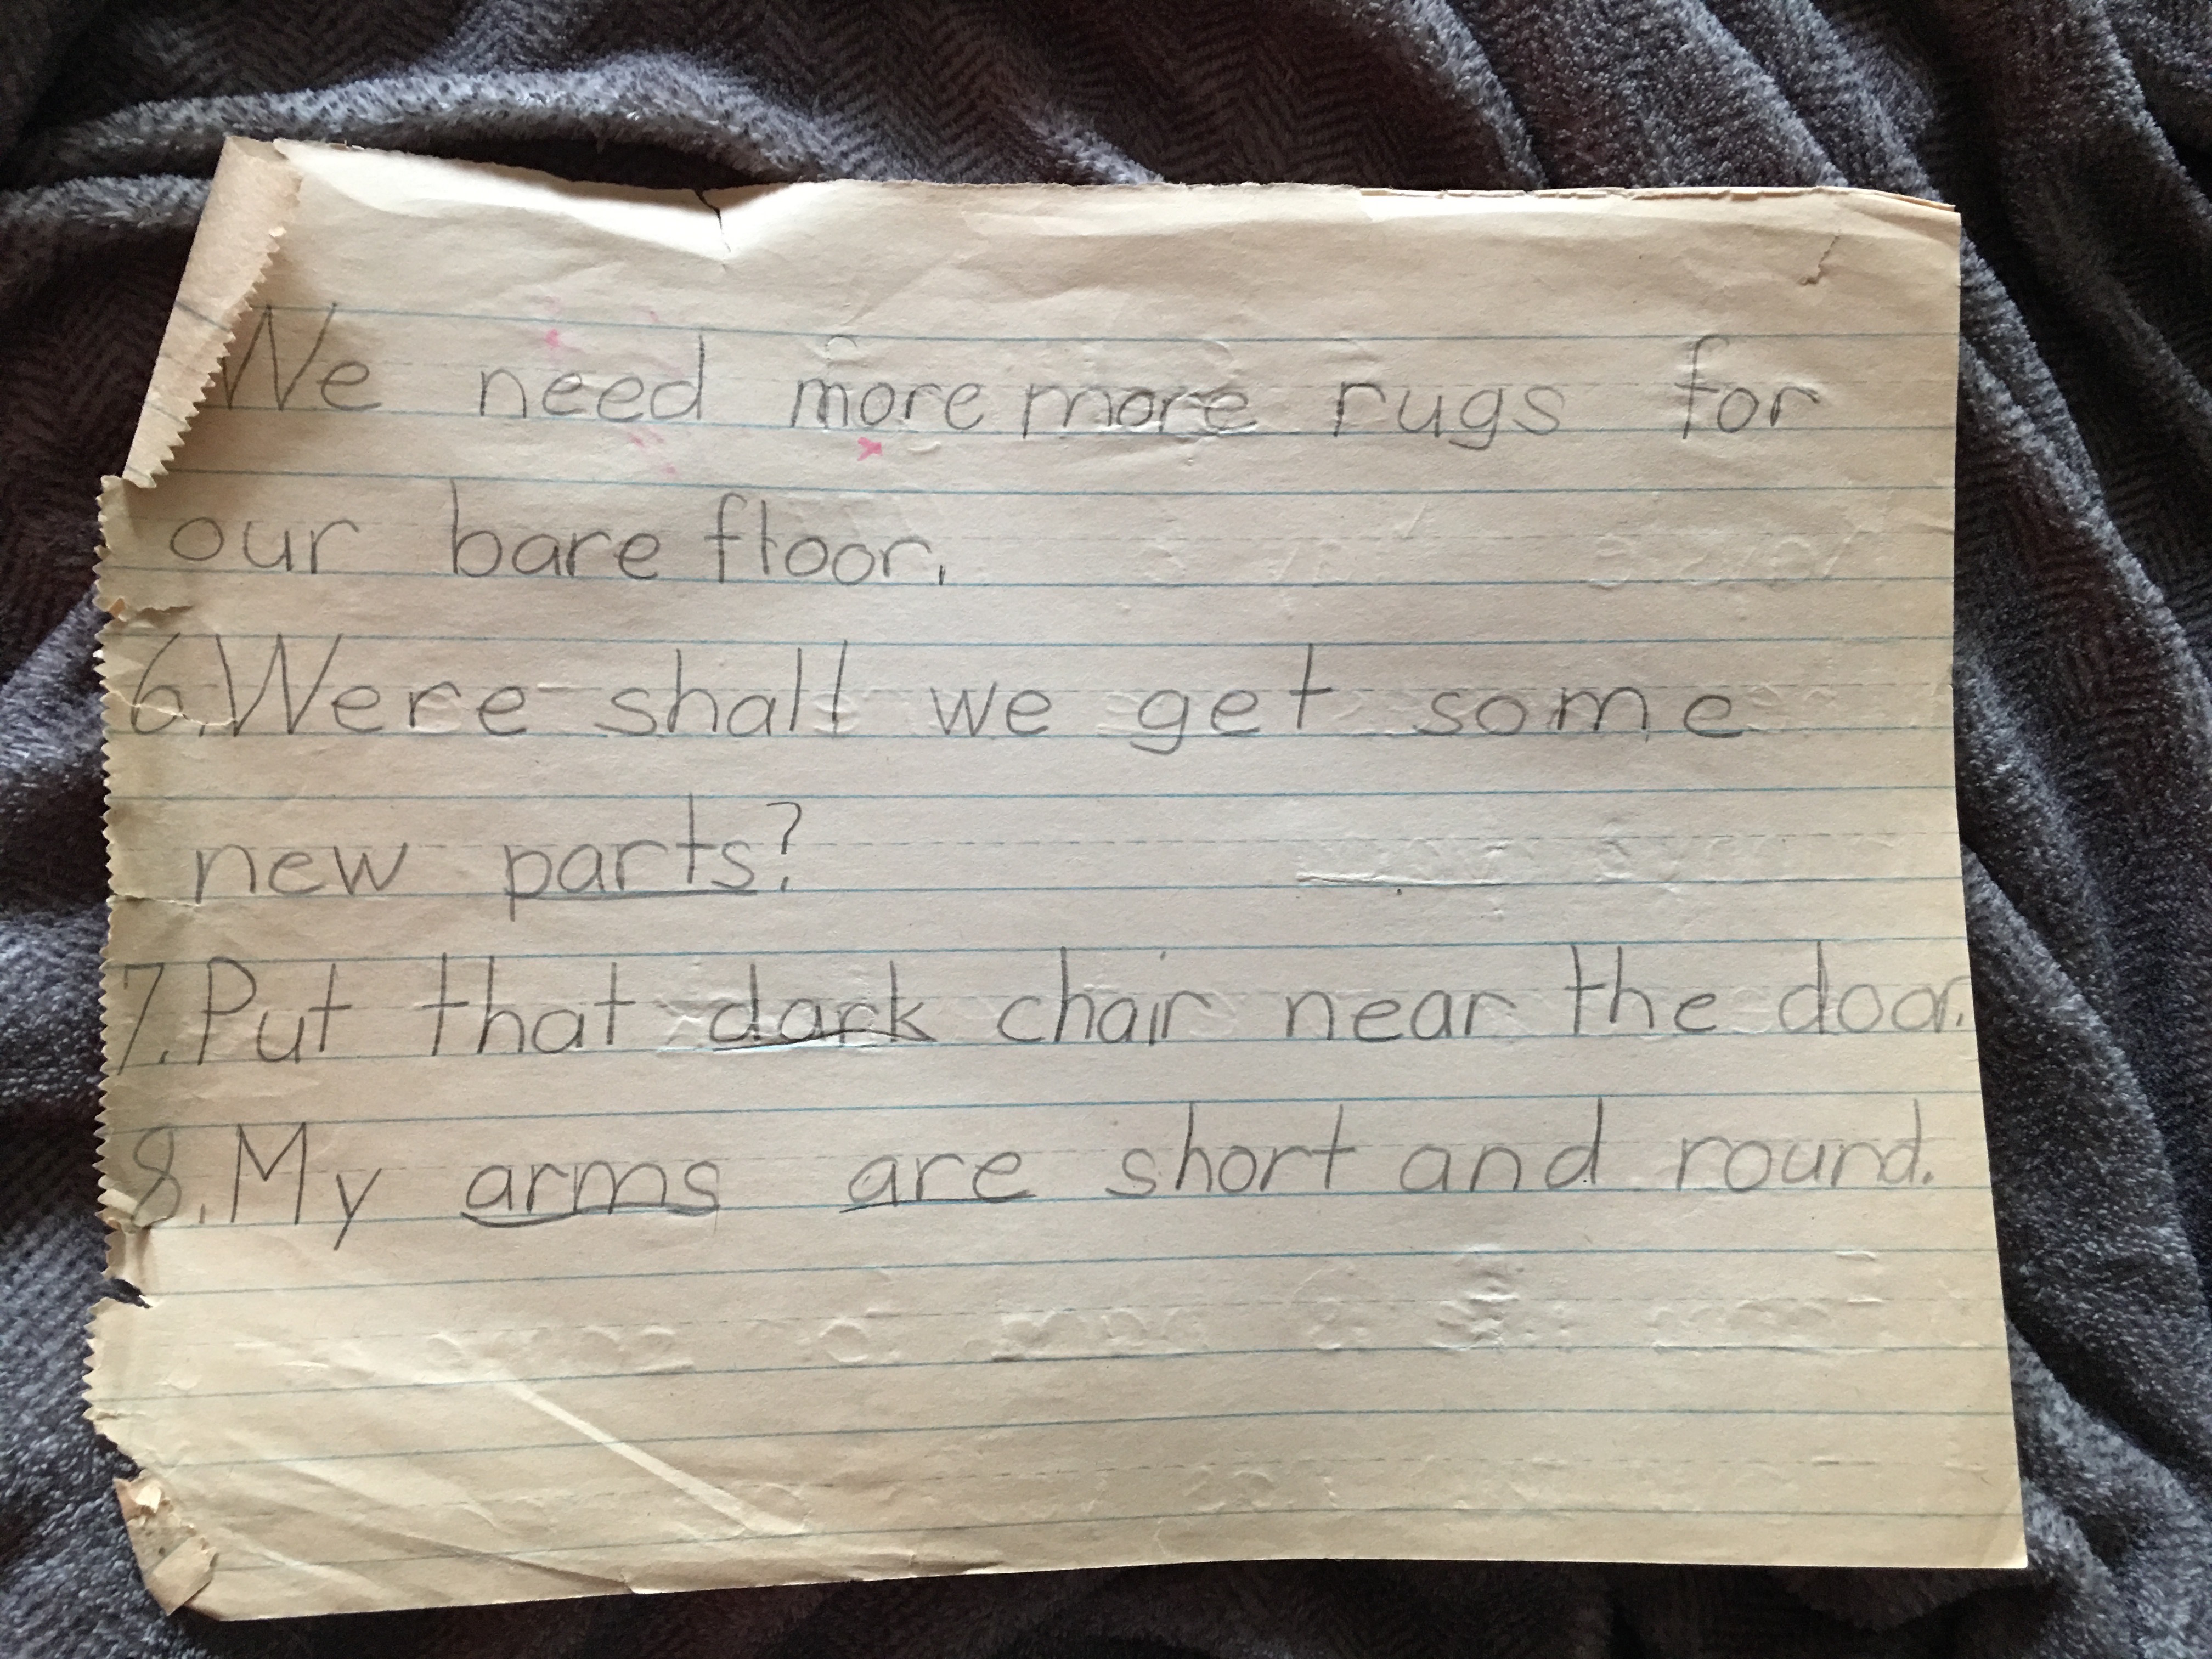 We need more more rugs for
our bare floor.
6. Were shall we get some
new parts?
7. Put that dark chair near the door.
8. My arms are short and round.